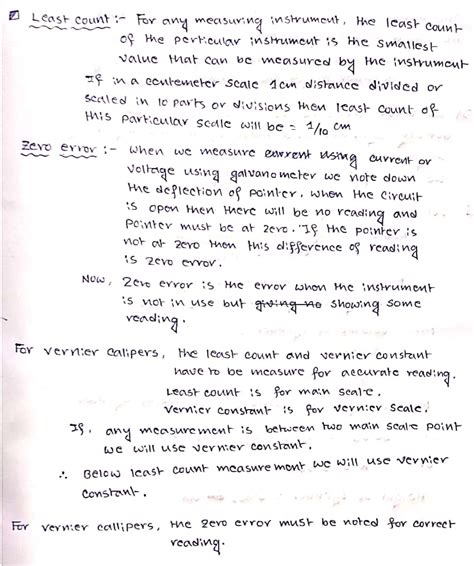 Least count :- For any measuring instrument, the least count
of the perticular instrument is the smallest
value that can be measured by the instrument
If in a centemeter scale 1cm distance divided or
scaled in 10 parts or divisions then least count of
this particular scale will be = 1/10 cm
Zero error :- when we measure current using current or
voltage using galvanometer we note down
the deflection of pointer. when the circuit
is open then there will be no reading and
pointer must be at zero. If the pointer is
not at zero then this difference of reading
is zero error.
Now, zero error is the error when the instrument
is not in use but giving no showing some
reading.
For vernier calipers, the least count and vernier constant
have to be measure for accurate reading.
Least count is for main scale.
Vernier constant is for vernier scale.
If, any measurement is between two main scale point
we will use vernier constant.
∴ Below least count measurement we will use vernier
constant.
For vernier callipers, the zero error must be noted for correct
reading.